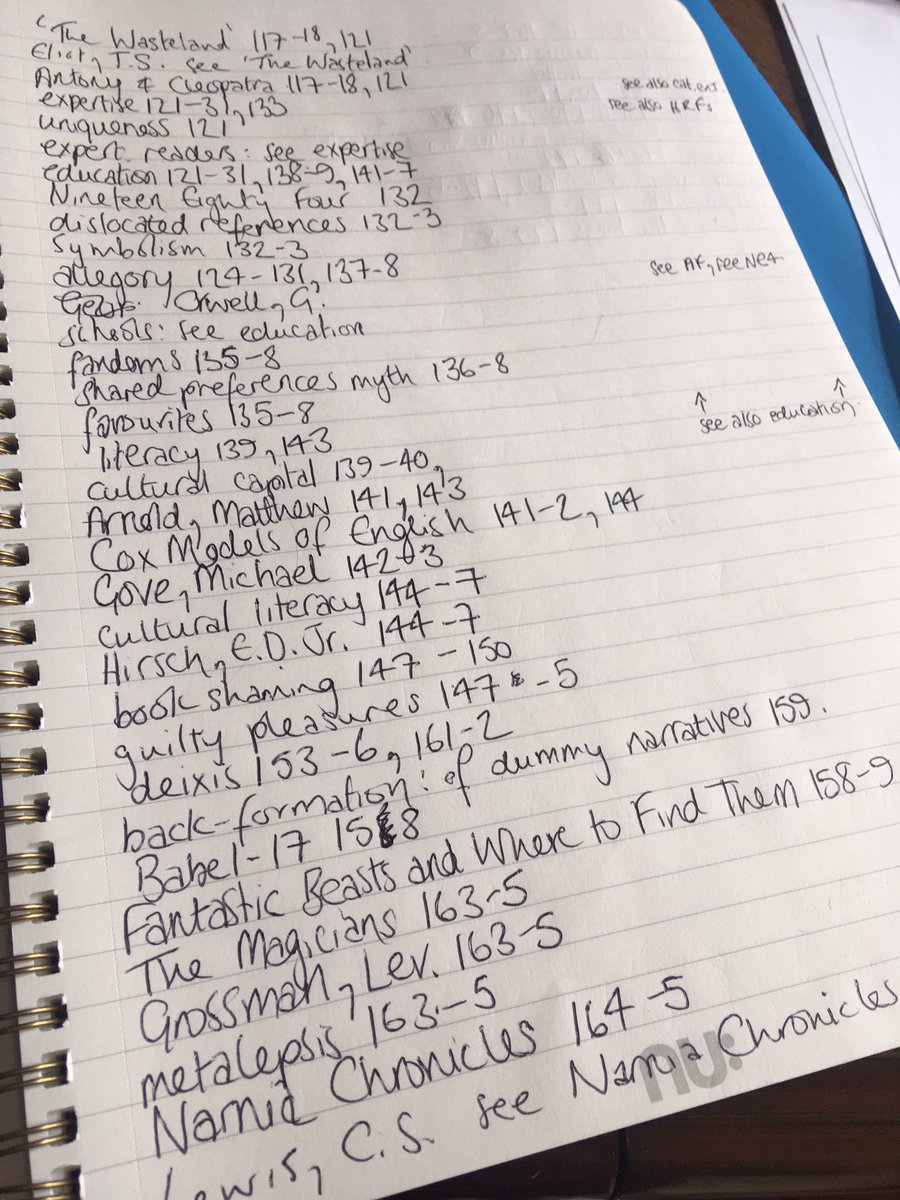 'The Wasteland' 117-18, 121
Eliot, T.S. see 'The Wasteland'
Antony & Cleopatra 117-18, 121 see also cat.ent.
expertise 121-31, 133 see also H.R.Fs
uniqueness 121
expert readers: see expertise
education 121-31, 138-9, 141-7
Nineteen Eighty Four 132
dislocated references 132-3
symbolism 132-3
allegory 124-131, 137-8 see AF, see NE4
Orwell, G.
schools: see education
fandoms 135-8
shared preferences myth 136-8
favourites 135-8 ↑ ↑
literacy 139, 143 see also education
cultural capital 139-40,
Arnold, Matthew 141, 143
Cox Models of English 141-2, 144
Gove, Michael 142-3
cultural literacy 144-7
Hirsch, E.D. Jr. 144-7
book shaming 147-150
guilty pleasures 147-5
deixis 153-6, 161-2
back-formation: of dummy narratives 159.
Babel-17 158
Fantastic Beasts and Where to Find Them 158-9
The Magicians 163-5
Grossman, Lev. 163-5
metalepsis 163-5
Narnia Chronicles 164-5
nu:
Lewis, C.S. see Narnia Chronicles